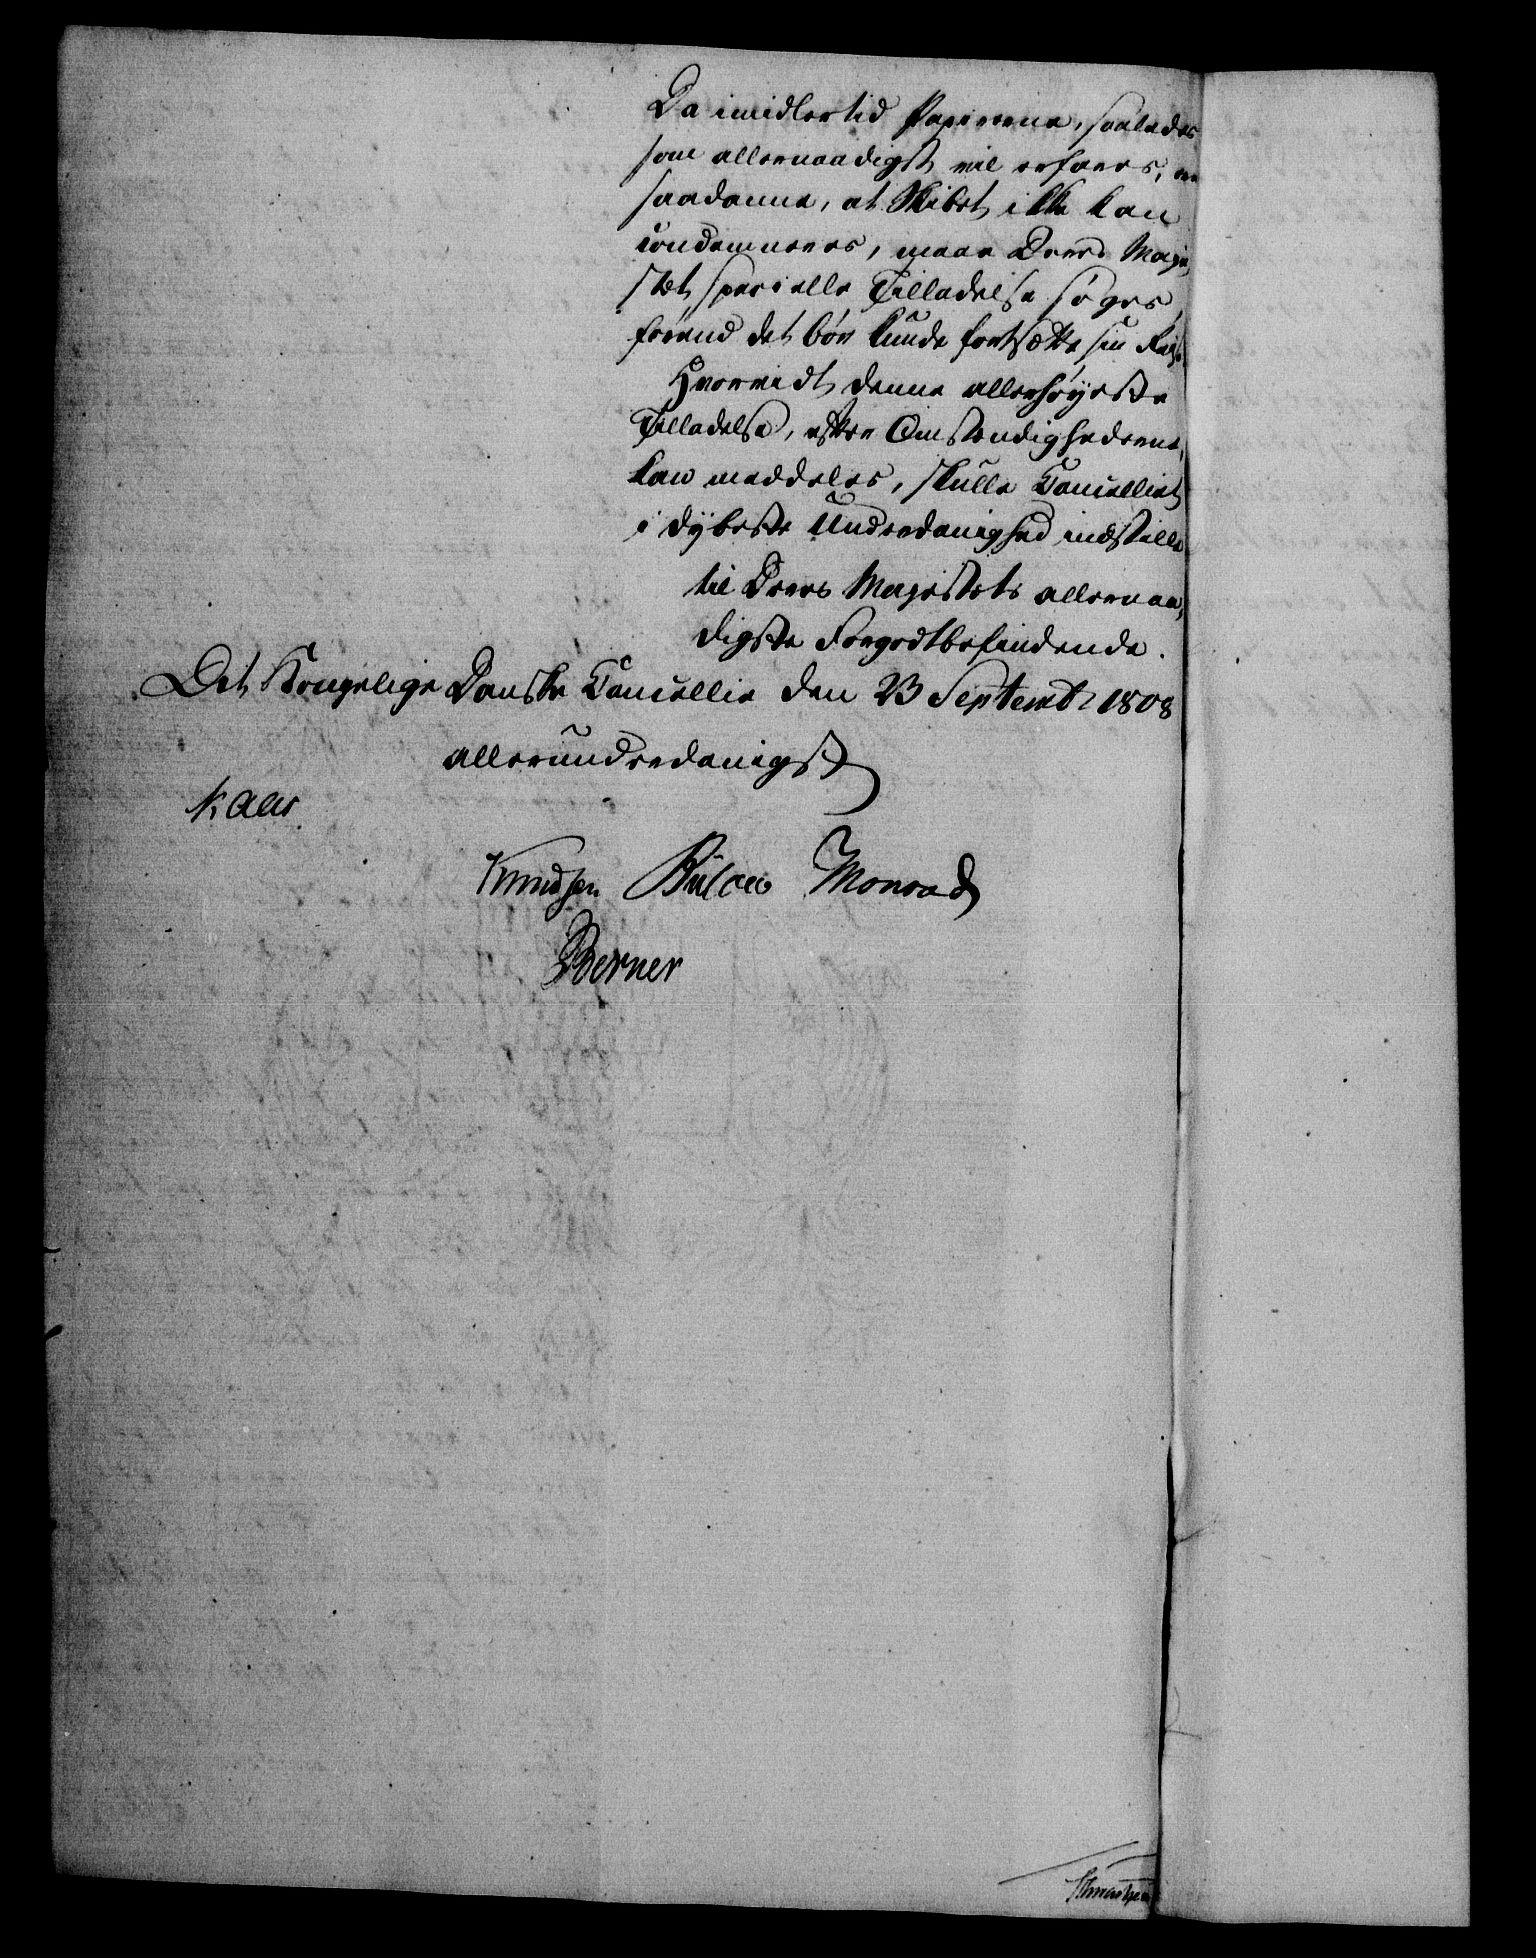 Da imidlertid Papirerne, saaledes
som allernaadigst vil erfares, ere
saadanne, at Skibet ikke kan
condemneres, maae Deres Maje
stæt specielle Tilladelse søges,
førend det bør kunde fortsætte sin Reise
Hvorvidt denne allerhøyeste
Tilladelse, efter Omstændighederne,
kan meddeles, skulle Cancelliet
i dybeste Underdanighed indstille
til Deres Majestæts allernaa,
digste Forgodtbefindende.
Det Kongelige Danske Cancellie den 23 Septembr 1808
allerunderdanigst
Kaas
Knudsen Bülow Monrad
Berner